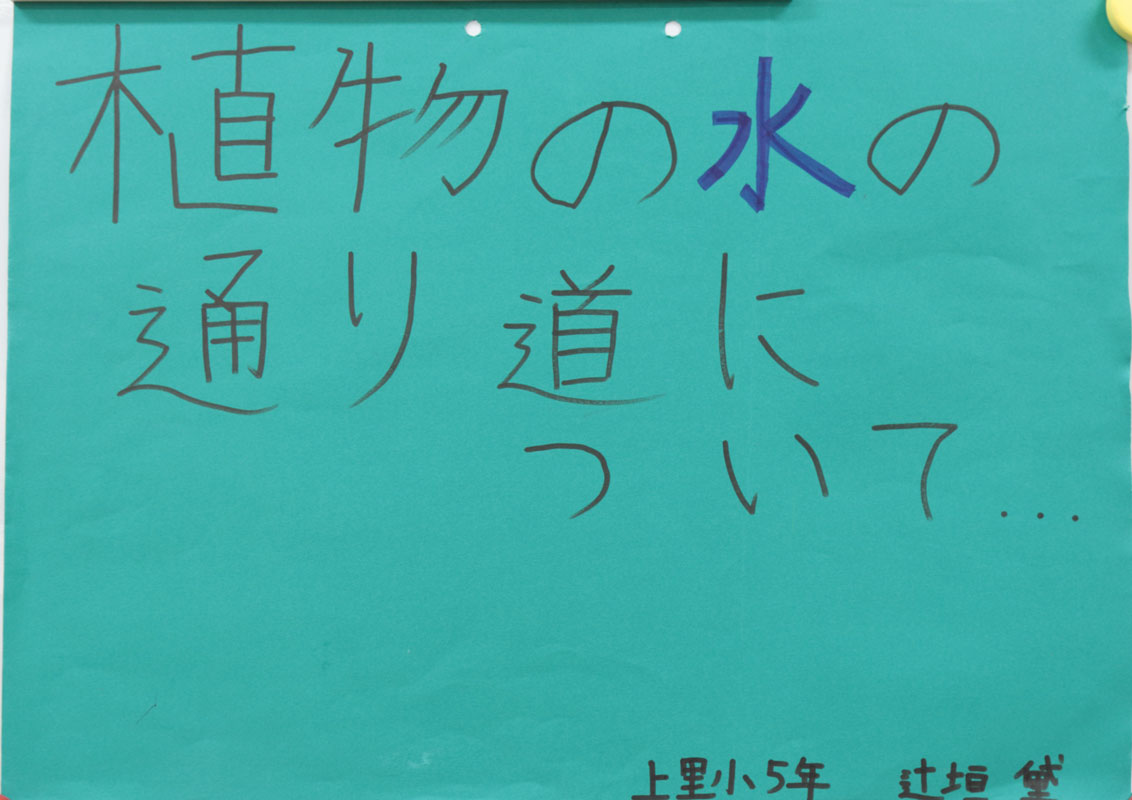 植物の水の
通り道に
ついて...
上里小5年 辻垣